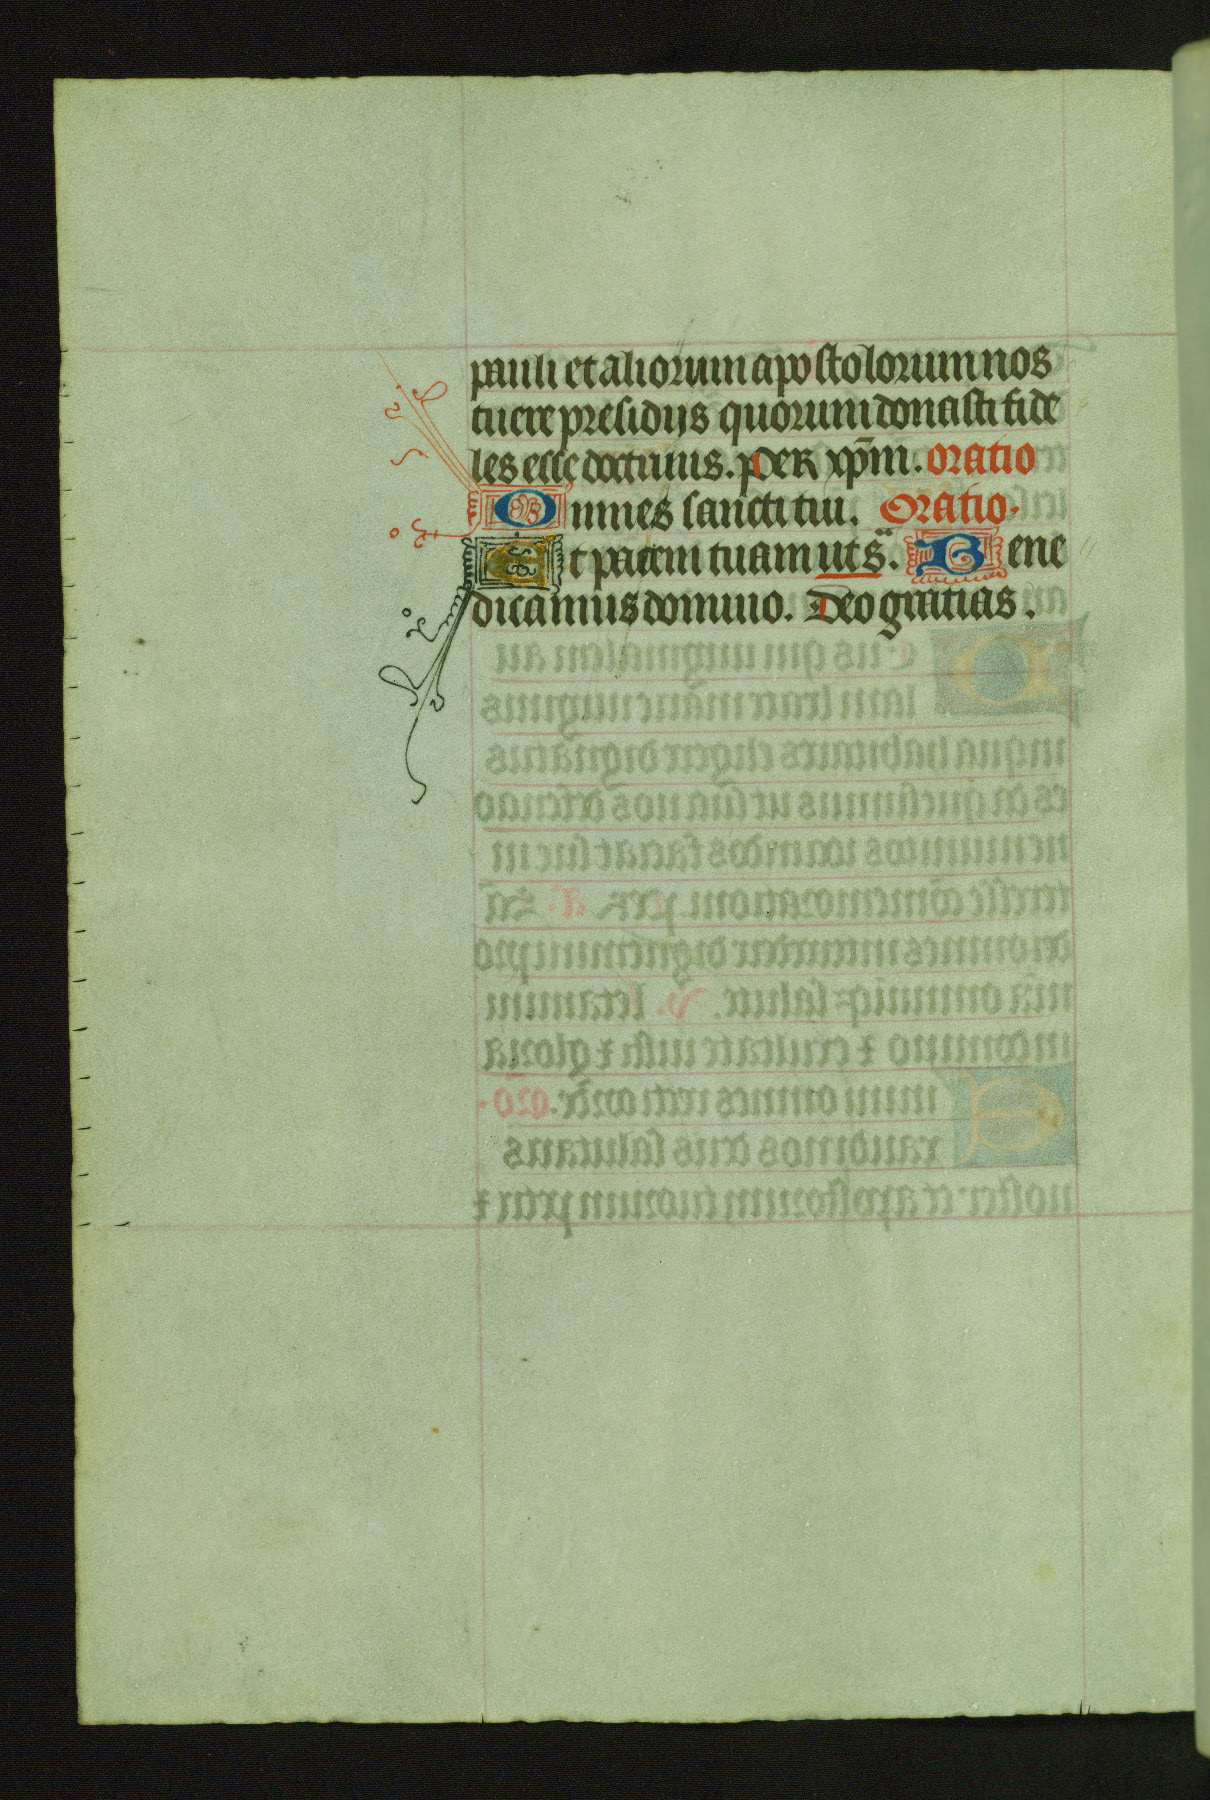 pauli et aliorum apostolorum nos
tuere presidijs quorum donasti fide
les esse doctrinis. Per xp̄m. oratio
Omnes sancti tui. Oratio.
Et pacem tuam ut s̄. Bene
dicamus domino. Deo gratias.